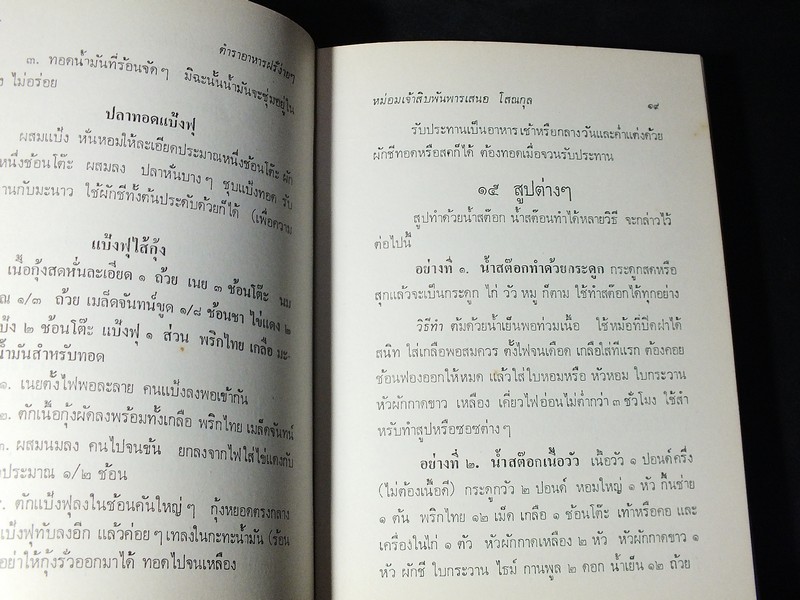 ตำราอาหารฝรั่งง่ายๆ
๓. ทอดน้ำมันที่ร้อนจัดๆ มิฉะนั้นน้ำมันจะชุ่มอยู่ใน
ไม่อร่อย
ปลาทอดแป้งฟุ
ผสมแป้ง หั่นหอมให้ละเอียดประมาณหนึ่งช้อนโต๊ะ ผัก
หนึ่งช้อนโต๊ะ ผสมลง ปลาหั่นบางๆ ชุบแป้งทอด รับ
านกับมะนาว ใช้ผักชีทั้งต้นประดับด้วยก็ได้ (เพื่อความ
แป้งฟุไส้กุ้ง
เนื้อกุ้งสดหั่นละเอียด ๑ ถ้วย เนย ๓ ช้อนโต๊ะ นม
ณ ๑/๓ ถ้วย เมล็ดจันทน์ขูด ๑/๘ ช้อนชา ไข่แดง ๒
แป้ง ๒ ช้อนโต๊ะ แป้งฟุ ๑ ส่วน พริกไทย เกลือ มะ-
น้ำมันสำหรับทอด
๑. เนยตั้งไฟพอละลาย คนแป้งลงพอเข้ากัน
๒. ตักเนื้อกุ้งผัดลงพร้อมทั้งเกลือ พริกไทย เมล็ดจันทน์
๓. ผสมนมลง คนไปจนข้น ยกลงจากไฟใส่ไข่แดงกับ
ประมาณ ๑/๒ ช้อน
ตักแป้งฟุลงในช้อนคันใหญ่ๆ กุ้งหยอดตรงกลาง
แป้งฟุทับลงอีก แล้วค่อยๆเทลงในกะทะน้ำมัน (ร้อน
อย่าให้กุ้งรั่วออกมาได้ ทอดไปจนเหลือง
หม่อมเจ้าสิบพันพารเสนอ โสณกุล ๑๙
รับประทานเป็นอาหารเช้าหรือกลางวันและค่ำแต่งด้วย
ผักชีทอดหรือสดก็ได้ ต้องทอดเมื่อจวนรับประทาน
๑๕ สูปต่างๆ
สูปทำด้วยน้ำสต๊อก น้ำสต๊อนทำได้หลายวิธี จะกล่าวไว้
ต่อไปนี้
อย่างที่ ๑. น้ำสต๊อกทำด้วยกระดูก กระดูกสดหรือ
สุกแล้วจะเป็นกระดูก ไก่ วัว หมู ก็ตาม ใช้ทำสต๊อกได้ทุกอย่าง
วิธีทำ ต้มด้วยน้ำเย็นพอท่วมเนื้อ ใช้หม้อที่ปิดฝาได้
สนิท ใส่เกลือพอสมควร ตั้งไฟจนเดือด เกลือใส่ทีแรก ต้องคอย
ช้อนฟองออกให้หมด แล้วใส่ใบหอมหรือ หัวหอม ใบกระวาน
หัวผักกาดขาว เหลือง เคี่ยวไฟอ่อนไม่ต่ำกว่า ๓ ชั่วโมง ใช้สำ
หรับทำสูปหรือซอซต่างๆ
อย่างที่ ๒. น้ำสต๊อกเนื้อวัว เนื้อวัว ๑ ปอนด์ครึ่ง
(ไม่ต้องเนื้อดี) กระดูกวัว ๒ ปอนด์ หอมใหญ่ ๑ หัว กึ้นช่าย
๑ ต้น พริกไทย ๑๒ เม็ด เกลือ ๑ ช้อนโต๊ะ เท้าหรือคอ และ
เครื่องในไก่ ๑ ตัว หัวผักกาดเหลือง ๒ หัว หัวผักกาดขาว ๑
หัว ผักชี ใบกระวาน ไธม์ กานพูล ๒ ดอก น้ำเย็น ๑๒ ถ้วย